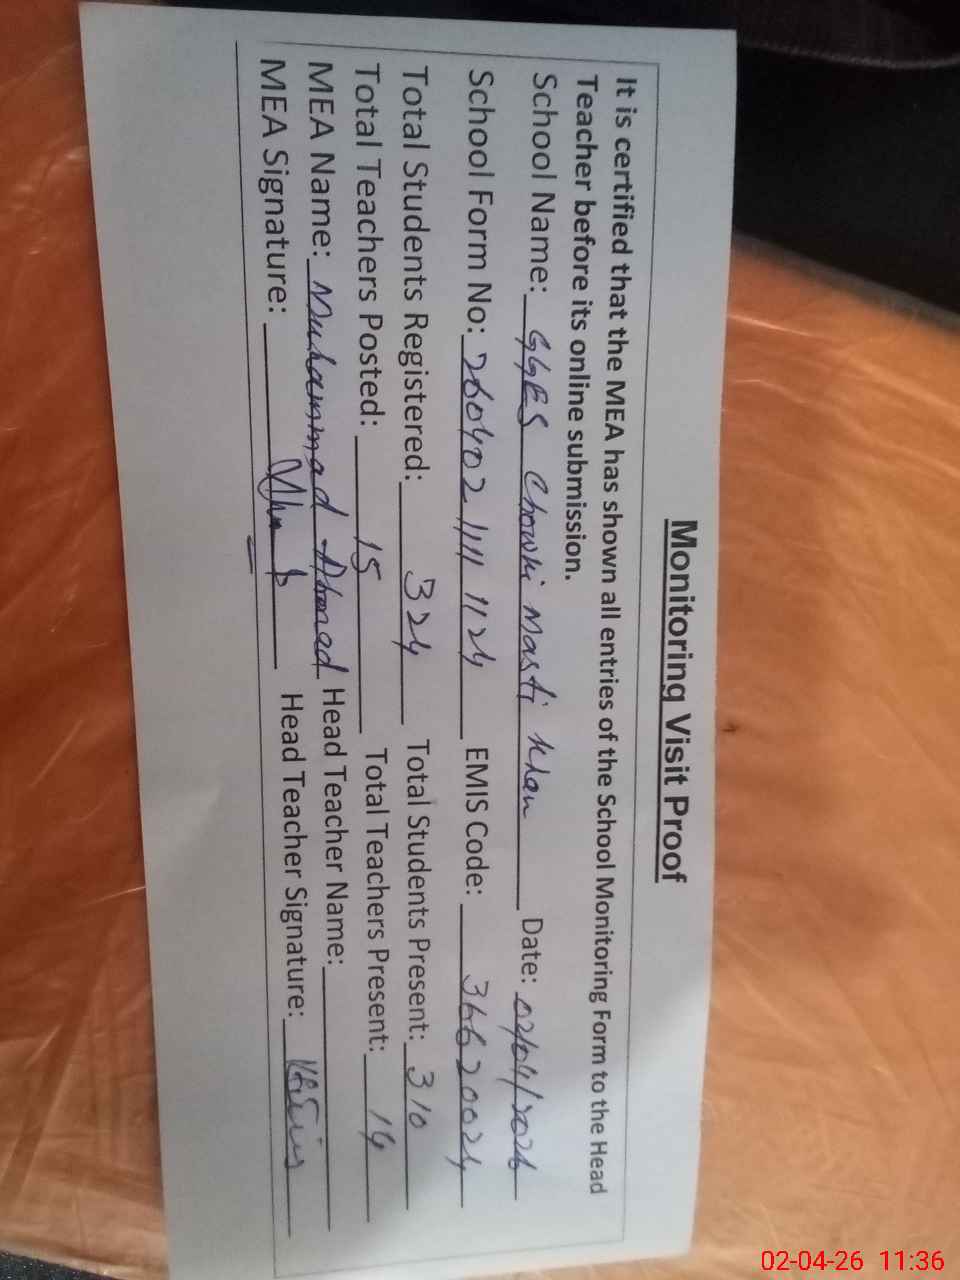 Monitoring Visit Proof
It is certified that the MEA has shown all entries of the School Monitoring Form to the Head
Teacher before its online submission.
School Name: GGES Chowki Masti Khan Date: 02/04/2026
School Form No: 260402 1111 1124 EMIS Code: 36620024
Total Students Registered: 324 Total Students Present: 310
Total Teachers Posted: 15 Total Teachers Present: 14
MEA Name: Muhammad Ahmad Head Teacher Name:
MEA Signature: Head Teacher Signature:
02-04-26 11:36